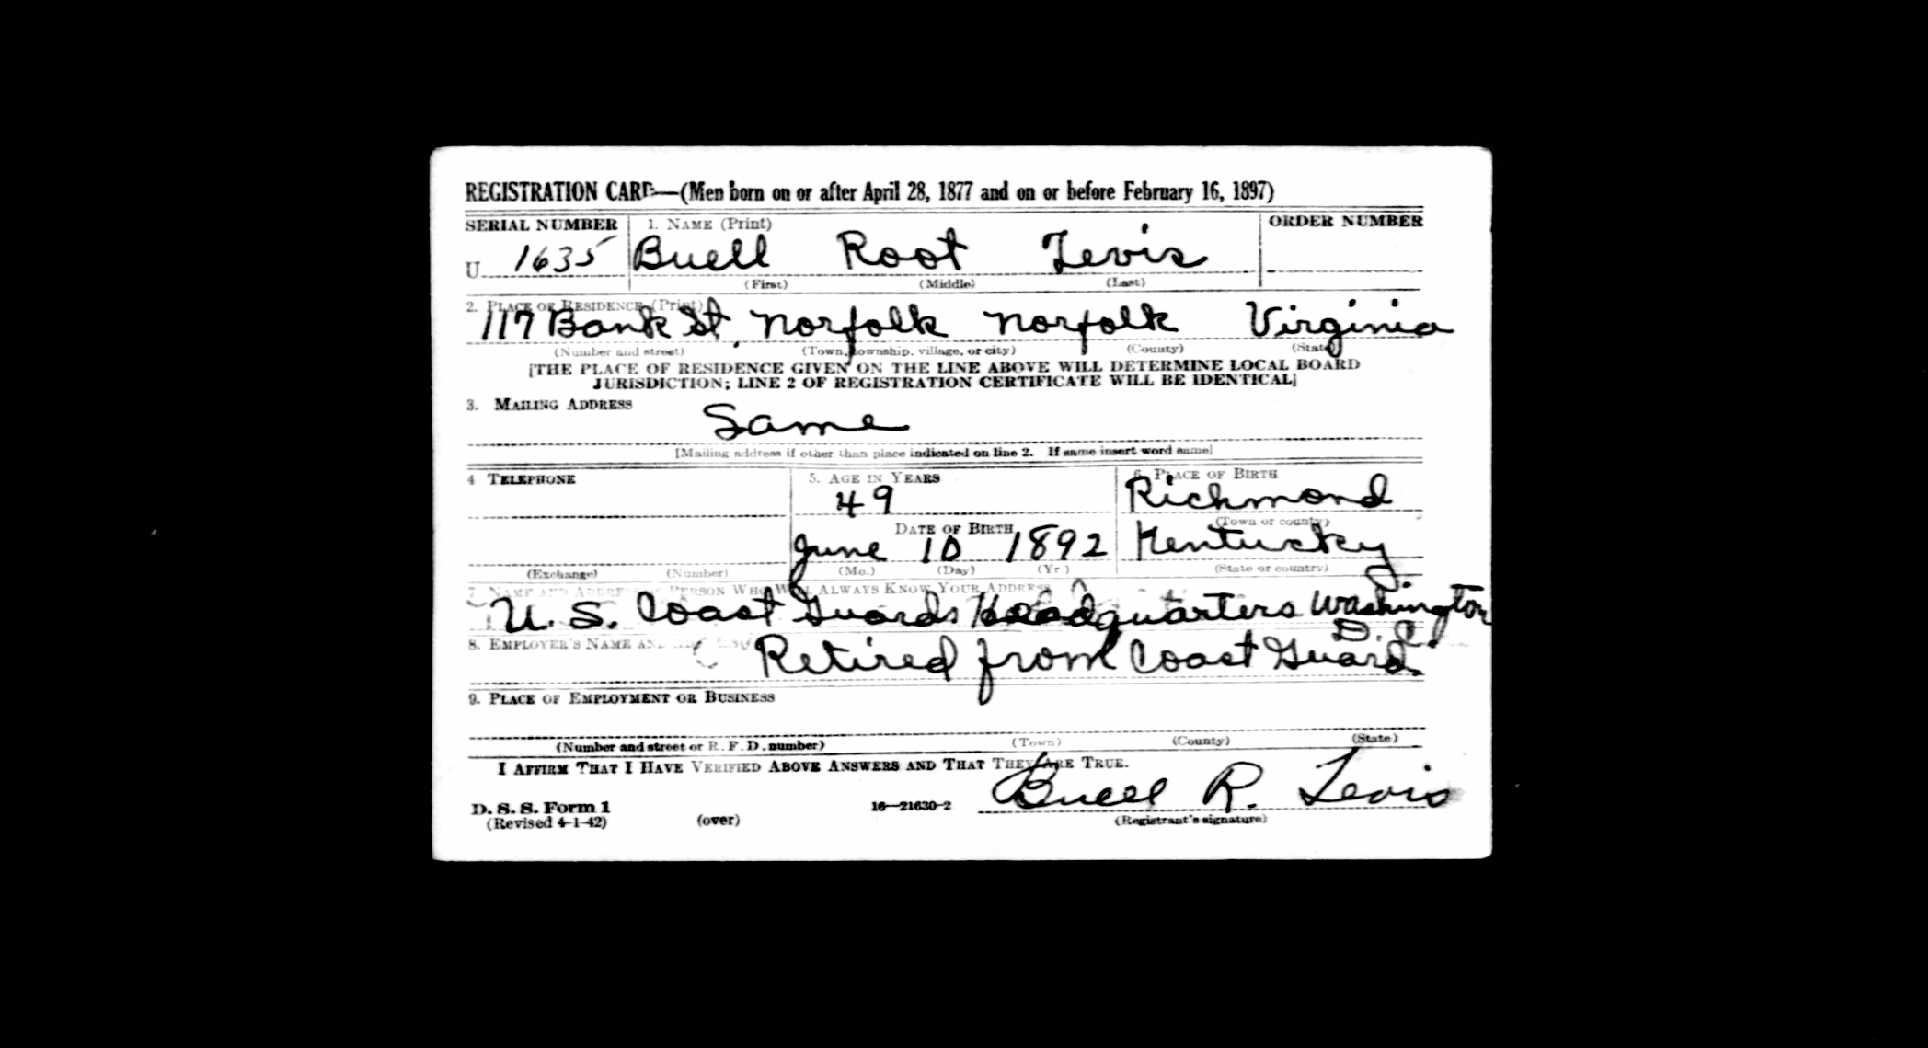 REGISTRATION CARD—(Men born on or after April 28, 1877 and on or before February 16, 1897)
SERIAL NUMBER 1. NAME (Print) ORDER NUMBER
U 1635 Buell Root Tevis
(First) (Middle) (Last)
2. PLACE OF RESIDENCE (Print)
117 Bank St, Norfolk Norfolk Virginia
(Number and street) (Town, township, village, or city) (County) (State)
[THE PLACE OF RESIDENCE GIVEN ON THE LINE ABOVE WILL DETERMINE LOCAL BOARD
JURISDICTION; LINE 2 OF REGISTRATION CERTIFICATE WILL BE IDENTICAL]
3. MAILING ADDRESS
Same
[Mailing address if other than place indicated on line 2. If same insert word same]
4 TELEPHONE 5. AGE IN YEARS 6. PLACE OF BIRTH
49 Richmond
DATE OF BIRTH (Town or county)
June 10 1892 Kentucky
(Exchange) (Number) (Mo.) (Day) (Yr.) (State or country)
7. NAME AND ADDRESS OF PERSON WHO WILL ALWAYS KNOW YOUR ADDRESS
U. S. Coast Guards Headquarters Washington
D. C.
8. EMPLOYER'S NAME AND
Retired from Coast Guard.
9. PLACE OF EMPLOYMENT OR BUSINESS
(Number and street or R. F. D. number) (Town) (County) (State)
I AFFIRM THAT I HAVE VERIFIED ABOVE ANSWERS AND THAT THEY ARE TRUE.
Buell R. Tevis
D. S. S. Form 1 16—21630-2
(Revised 4-1-42) (over) (Registrant's signature)